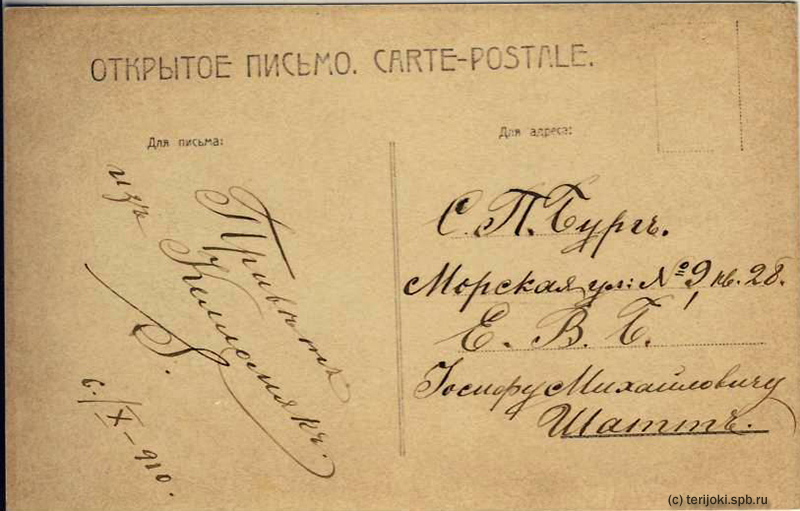 ОТКРЫТОЕ ПИСЬМО. CARTE-POSTALE.
Для письма:
Привѣтъ
изъ
Келломякъ.
6./IX–910.
Для адреса:
С. П. Бургъ.
Морская ул: № 9, кв. 28.
Е. В. Б.
Іосифу Михайловичу
Шаттъ.
(c) terijoki.spb.ru